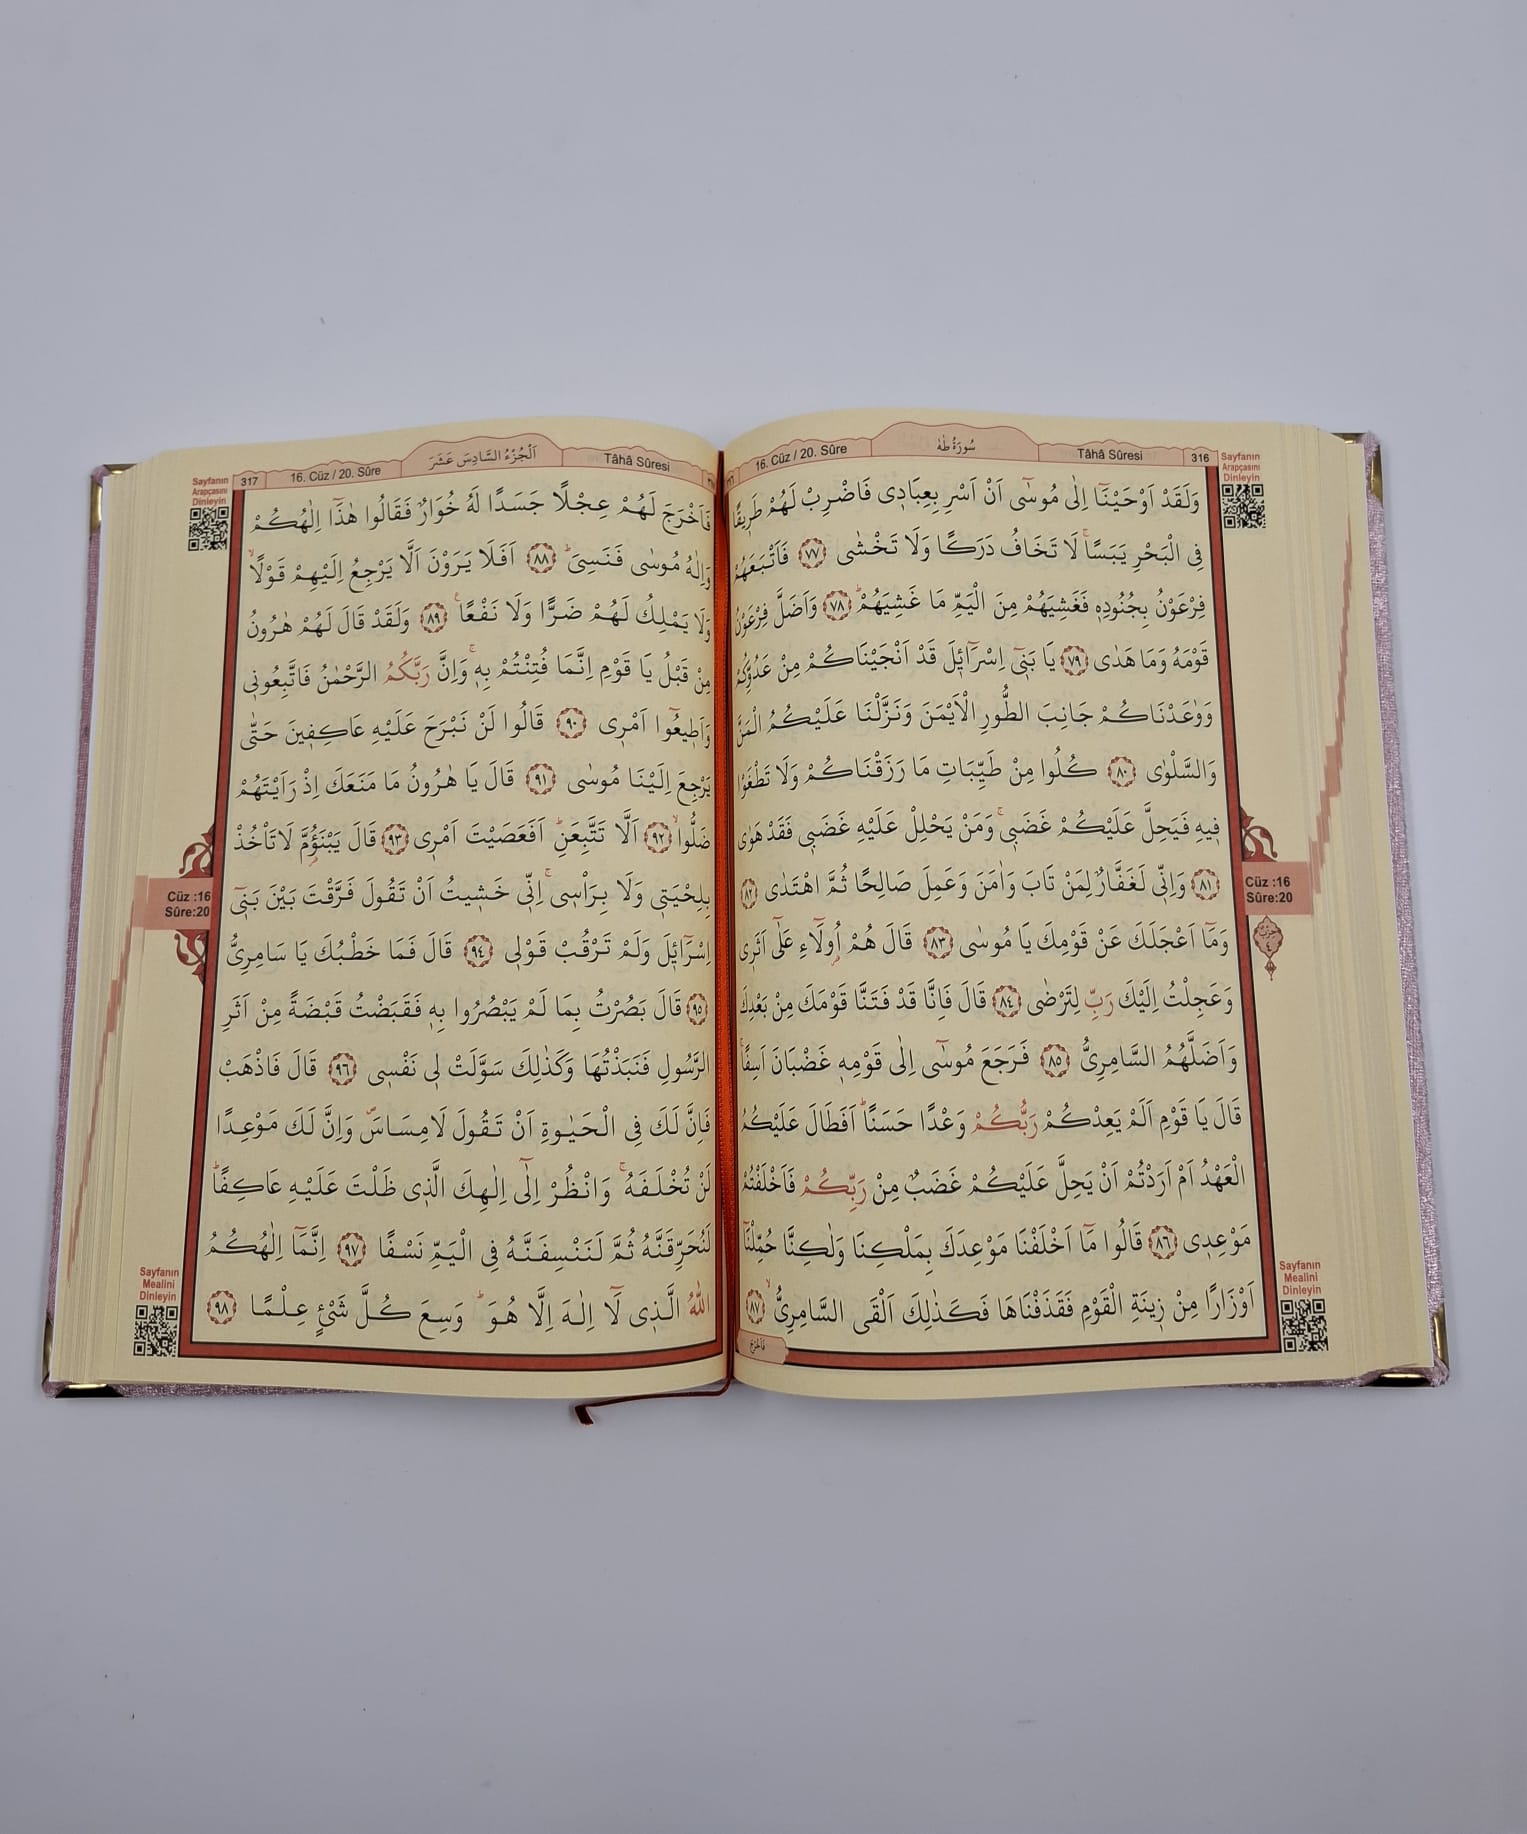 316
Tâhâ Sûresi
سُورَةُ طٰهٰ
16. Cüz / 20. Sûre
Sayfanın
Arapçasını
Dinleyin
وَلَقَدْ اَوْحَيْنَٓا اِلٰى مُوسٰٓى اَنْ اَسْرِ بِعِبَادٖى فَاضْرِبْ لَهُمْ طَرٖيقًا
فِى الْبَحْرِ يَبَسًاۚ لَا تَخَافُ دَرَكًا وَلَا تَخْشٰى ﴿٧٧﴾ فَاَتْبَعَهُمْ
فِرْعَوْنُ بِجُنُودِهٖ فَغَشِيَهُمْ مِنَ الْيَمِّ مَا غَشِيَهُمْؕ ﴿٧٨﴾ وَاَضَلَّ فِرْعَوْنُ
قَوْمَهُ وَمَا هَدٰى ﴿٧٩﴾ يَا بَنٖٓى اِسْرَٓائٖلَ قَدْ اَنْجَيْنَاكُمْ مِنْ عَدُوِّكُمْ
وَوٰعَدْنَاكُمْ جَانِبَ الطُّورِ الْاَيْمَنَ وَنَزَّلْنَا عَلَيْكُمُ الْمَنَّ
وَالسَّلْوٰى ﴿٨٠﴾ كُلُوا مِنْ طَيِّبَاتِ مَا رَزَقْنَاكُمْ وَلَا تَطْغَوْا
فٖيهِ فَيَحِلَّ عَلَيْكُمْ غَضَبٖىۚ وَمَنْ يَحْلِلْ عَلَيْهِ غَضَبٖى فَقَدْ هَوٰى
﴿٨١﴾ وَاِنّٖى لَغَفَّارٌ لِمَنْ تَابَ وَاٰمَنَ وَعَمِلَ صَالِحًا ثُمَّ اهْتَدٰى ﴿٨٢﴾
وَمَٓا اَعْجَلَكَ عَنْ قَوْمِكَ يَا مُوسٰى ﴿٨٣﴾ قَالَ هُمْ اُو۬لَٓاءِ عَلٰٓى اَثَرٖى
وَعَجِلْتُ اِلَيْكَ رَبِّ لِتَرْضٰى ﴿٨٤﴾ قَالَ فَاِنَّا قَدْ فَتَنَّا قَوْمَكَ مِنْ بَعْدِكَ
وَاَضَلَّهُمُ السَّامِرِىُّ ﴿٨٥﴾ فَرَجَعَ مُوسٰٓى اِلٰى قَوْمِهٖ غَضْبَانَ اَسِفًاۚ
قَالَ يَا قَوْمِ اَلَمْ يَعِدْكُمْ رَبُّكُمْ وَعْدًا حَسَنًاؕ اَفَطَالَ عَلَيْكُمُ
الْعَهْدُ اَمْ اَرَدْتُمْ اَنْ يَحِلَّ عَلَيْكُمْ غَضَبٌ مِنْ رَبِّكُمْ فَاَخْلَفْتُمْ
مَوْعِدٖى ﴿٨٦﴾ قَالُوا مَٓا اَخْلَفْنَا مَوْعِدَكَ بِمَلْكِنَا وَلٰكِنَّا حُمِّلْنَٓا
اَوْزَارًا مِنْ زٖينَةِ الْقَوْمِ فَقَذَفْنَاهَا فَكَذٰلِكَ اَلْقَى السَّامِرِىُّۙ ﴿٨٧﴾
فَاَخْرَجَ
Cüz :16
Sûre:20
حِزْبْ
٤
Sayfanın
Mealini
Dinleyin
Tâhâ Sûresi
اَلْجُزْءُ السَّادِسَ عَشَرَ
16. Cüz / 20. Sûre
317
Sayfanın
Arapçasını
Dinleyin
فَاَخْرَجَ لَهُمْ عِجْلًا جَسَدًا لَهُ خُوَارٌ فَقَالُوا هٰذَٓا اِلٰهُكُمْ
وَاِلٰهُ مُوسٰى فَنَسِىَؕ ﴿٨٨﴾ اَفَلَا يَرَوْنَ اَلَّا يَرْجِعُ اِلَيْهِمْ قَوْلًاۙ
وَلَا يَمْلِكُ لَهُمْ ضَرًّا وَلَا نَفْعًاۚ ﴿٨٩﴾ وَلَقَدْ قَالَ لَهُمْ هٰرُونُ
مِنْ قَبْلُ يَا قَوْمِ اِنَّمَا فُتِنْتُمْ بِهٖۚ وَاِنَّ رَبَّكُمُ الرَّحْمٰنُ فَاتَّبِعُونٖى
وَاَطٖيعُٓوا اَمْرٖى ﴿٩٠﴾ قَالُوا لَنْ نَبْرَحَ عَلَيْهِ عَاكِفٖينَ حَتّٰى
يَرْجِعَ اِلَيْنَا مُوسٰى ﴿٩١﴾ قَالَ يَا هٰرُونُ مَا مَنَعَكَ اِذْ رَاَيْتَهُمْ
ضَلُّواۙ ﴿٩٢﴾ اَلَّا تَتَّبِعَنِؕ اَفَعَصَيْتَ اَمْرٖى ﴿٩٣﴾ قَالَ يَبْنَؤُ۬مَّ لَا تَاْخُذْ
بِلِحْيَتٖى وَلَا بِرَاْسٖىۚ اِنّٖى خَشٖيتُ اَنْ تَقُولَ فَرَّقْتَ بَيْنَ بَنٖٓى
اِسْرَٓائٖلَ وَلَمْ تَرْقُبْ قَوْلٖى ﴿٩٤﴾ قَالَ فَمَا خَطْبُكَ يَا سَامِرِىُّ
﴿٩٥﴾ قَالَ بَصُرْتُ بِمَا لَمْ يَبْصُرُوا بِهٖ فَقَبَضْتُ قَبْضَةً مِنْ اَثَرِ
الرَّسُولِ فَنَبَذْتُهَا وَكَذٰلِكَ سَوَّلَتْ لٖى نَفْسٖى ﴿٩٦﴾ قَالَ فَاذْهَبْ
فَاِنَّ لَكَ فِى الْحَيٰوةِ اَنْ تَقُولَ لَا مِسَاسَࣕ وَاِنَّ لَكَ مَوْعِدًا
لَنْ تُخْلَفَهُۚ وَانْظُرْ اِلٰٓى اِلٰهِكَ الَّذٖى ظَلْتَ عَلَيْهِ عَاكِفًاؕ
لَنُحَرِّقَنَّهُ ثُمَّ لَنَنْسِفَنَّهُ فِى الْيَمِّ نَسْفًا ﴿٩٧﴾ اِنَّمَٓا اِلٰهُكُمُ
اللّٰهُ الَّذٖى لَٓا اِلٰهَ اِلَّا هُوَؕ وَسِعَ كُلَّ شَىْءٍ عِلْمًا ﴿٩٨﴾
Cüz :16
Sûre:20
Sayfanın
Mealini
Dinleyin